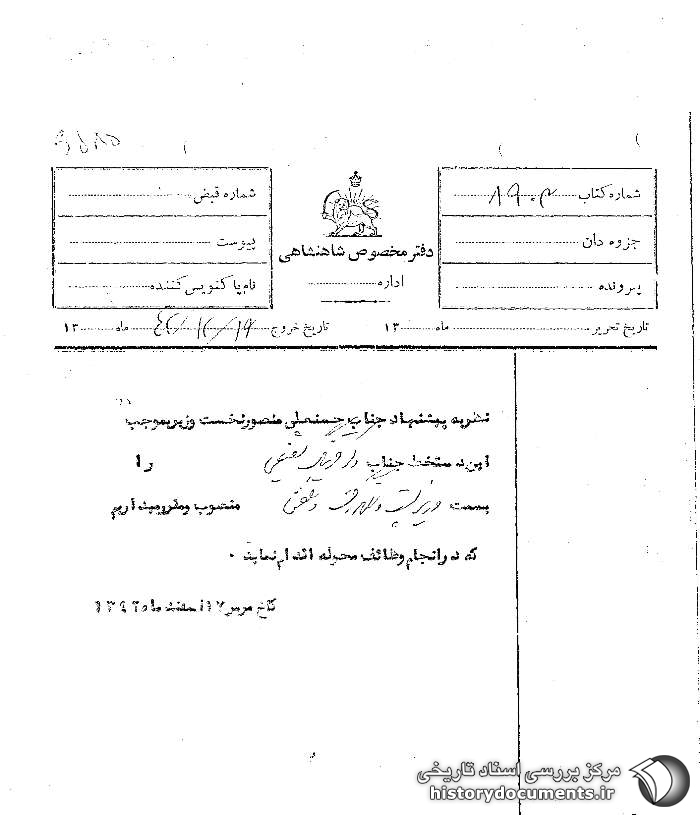 شماره کتاب ۸۹۰۳
جزوه دان
پرونده
دفتر مخصوص شاهنشاهی
اداره
شماره قبض
پیوست
نام پاکنویس کننده
تاریخ تحریر ماه ۱۳
تاریخ خروج ماه ۱۳
نظر به پیشنهاد جناب حسنعلی منصور نخست وزیر بموجب
این دستخط جناب را
بسمت وزیر منصوب و مقرر میداریم
که در انجام وظائف محوله اقدام نماید .
کاخ مرمر ۱۷ اسفند ماه ۱۳۴۲
مرکز بررسی اسناد تاریخی
historydocuments.ir